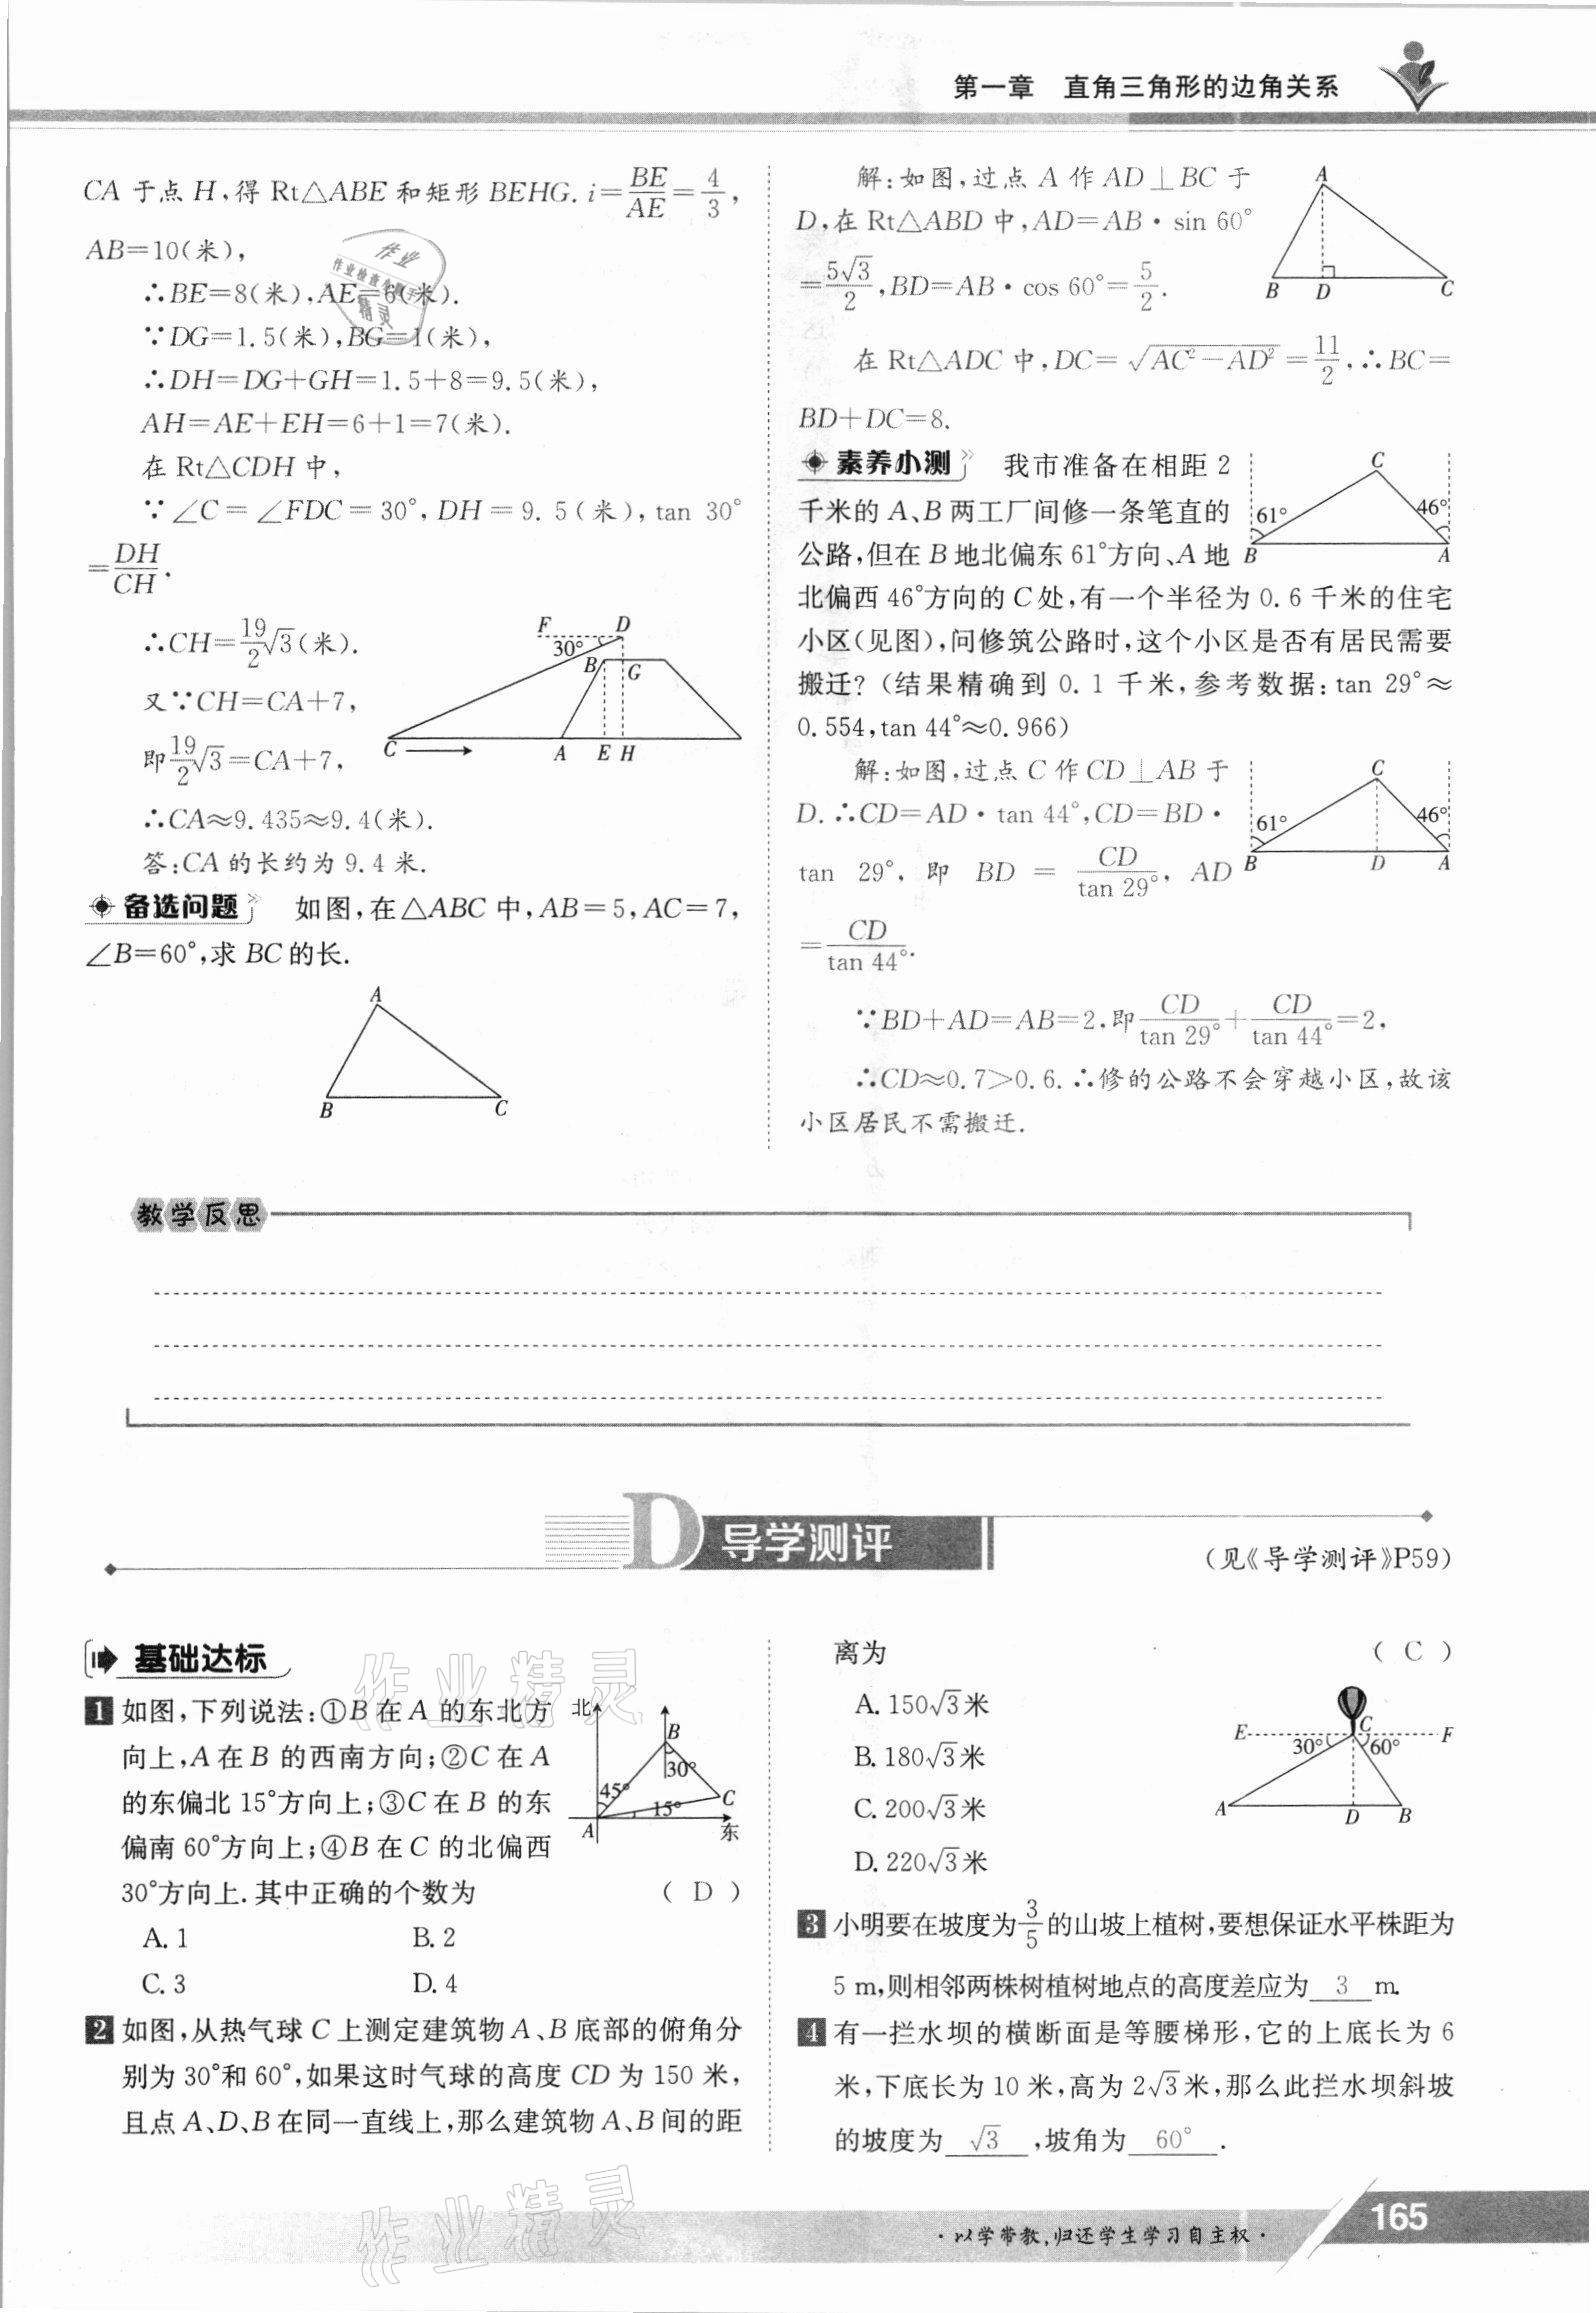 第一章 直角三角形的边角关系
CA 于点 H,得 Rt△ABE 和矩形 BEHG. i=BE/AE=4/3,
AB=10(米),
∴BE=8(米),AE=6(米).
∵DG=1.5(米),BG=1(米),
∴DH=DG+GH=1.5+8=9.5(米),
AH=AE+EH=6+1=7(米).
在 Rt△CDH 中,
∵∠C=∠FDC=30°,DH=9.5(米),tan 30°
=DH/CH.
∴CH=19/2√3(米).
又∵CH=CA+7,
即19/2√3=CA+7,
∴CA≈9.435≈9.4(米).
答:CA 的长约为 9.4 米.
F D
30°
B G
C A E H
备选问题 如图,在△ABC 中,AB=5,AC=7,
∠B=60°,求 BC 的长.
A
B C
解:如图,过点 A 作 AD⊥BC 于
D,在 Rt△ABD 中,AD=AB·sin 60°
=5√3/2,BD=AB·cos 60°=5/2.
A
B D C
在 Rt△ADC 中,DC=√AC²-AD²=11/2,∴BC=
BD+DC=8.
素养小测 我市准备在相距 2
千米的 A、B 两工厂间修一条笔直的
公路,但在 B 地北偏东 61°方向、A 地
北偏西 46°方向的 C 处,有一个半径为 0.6 千米的住宅
小区(见图),问修筑公路时,这个小区是否有居民需要
搬迁?(结果精确到 0.1 千米,参考数据:tan 29°≈
0.554,tan 44°≈0.966)
C
61° 46°
B A
解:如图,过点 C 作 CD⊥AB 于
D.∴CD=AD·tan 44°,CD=BD·
tan 29°,即 BD=CD/tan 29°,AD
=CD/tan 44°.
C
61° 46°
B D A
∵BD+AD=AB=2,即CD/tan 29°+CD/tan 44°=2,
∴CD≈0.7>0.6.∴修的公路不会穿越小区,故该
小区居民不需搬迁.
教学反思
D 导学测评
(见《导学测评》P59)
基础达标
1 如图,下列说法:①B 在 A 的东北方
向上,A 在 B 的西南方向;②C 在 A
的东偏北 15°方向上;③C 在 B 的东
偏南 60°方向上;④B 在 C 的北偏西
30°方向上.其中正确的个数为 ( D )
A. 1 B. 2
C. 3 D. 4
北
B
30°
45°
C
15°
A 东
2 如图,从热气球 C 上测定建筑物 A、B 底部的俯角分
别为 30°和 60°,如果这时气球的高度 CD 为 150 米,
且点 A、D、B 在同一直线上,那么建筑物 A、B 间的距
离为 ( C )
A. 150√3米
B. 180√3米
C. 200√3米
D. 220√3米
E C F
30° 60°
A D B
3 小明要在坡度为3/5的山坡上植树,要想保证水平株距为
5 m,则相邻两株树植树地点的高度差应为 3 m.
4 有一拦水坝的横断面是等腰梯形,它的上底长为 6
米,下底长为 10 米,高为 2√3米,那么此拦水坝斜坡
的坡度为 √3 ,坡角为 60° .
·以学带教,归还学生学习自主权·
165
作业精灵
作业精灵
作业
作业检查小助手
精灵